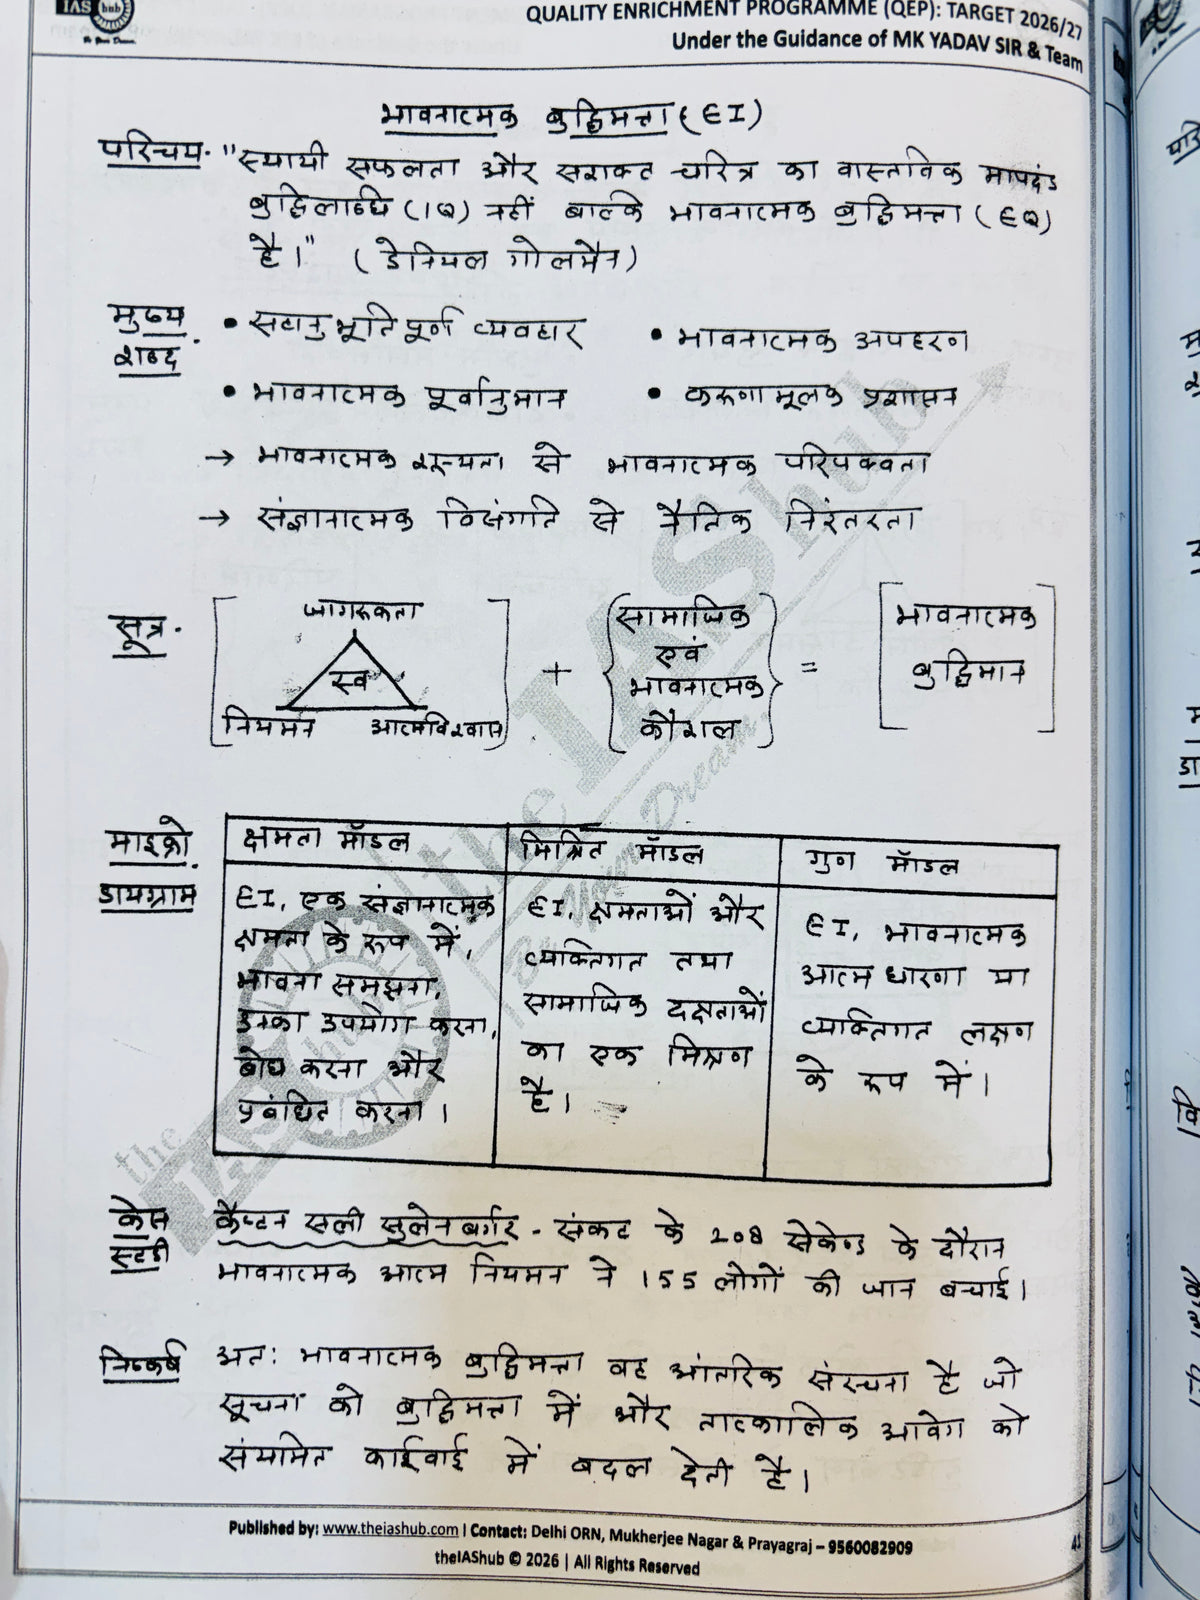 IAS hub
QUALITY ENRICHMENT PROGRAMME (QEP): TARGET 2026/27
Under the Guidance of MK YADAV SIR & Team
भावनात्मक बुद्धिमत्ता (EI)
परिचय. "स्थायी सफलता और सशक्त चरित्र का वास्तविक मापदंड
बुद्धिलब्धि (IQ) नहीं बल्कि भावनात्मक बुद्धिमत्ता (EQ)
है।" (डेनियल गोलमैन)
मुख्य शब्द.
• सहानुभूतिपूर्ण व्यवहार • भावनात्मक अपहरण
• भावनात्मक पूर्वानुमान • करुणामूलक प्रशासन
→ भावनात्मक शून्यता से भावनात्मक परिपक्वता
→ संज्ञानात्मक विसंगति से नैतिक निरंतरता
सूत्र.
जागरूकता
स्व
नियमन आत्मविश्वास
+
सामाजिक
एवं
भावनात्मक
कौशल
=
भावनात्मक
बुद्धिमान
माइक्रो.
डायग्राम
क्षमता मॉडल
EI, एक संज्ञानात्मक
क्षमता के रूप में,
भावना समझना,
उनका उपयोग करना,
बोध करना और
प्रबंधित करना।
मिश्रित मॉडल
EI, क्षमताओं और
व्यक्तिगत तथा
सामाजिक दक्षताओं
का एक मिश्रण
है।
गुण मॉडल
EI, भावनात्मक
आत्म धारणा या
व्यक्तिगत लक्षण
के रूप में।
केस स्टडी
कैप्टन सली सुलेनबर्गर - संकट के 208 सेकेण्ड के दौरान
भावनात्मक आत्म नियमन ने 155 लोगों की जान बचाई।
निष्कर्ष अतः भावनात्मक बुद्धिमत्ता वह आंतरिक संरचना है जो
सूचना को बुद्धिमत्ता में और तात्कालिक आवेग को
संयमित कार्रवाई में बदल देती है।
the IAS hub
Published by: www.theiashub.com | Contact: Delhi ORN, Mukherjee Nagar & Prayagraj – 9560082909
theIAShub © 2026 | All Rights Reserved